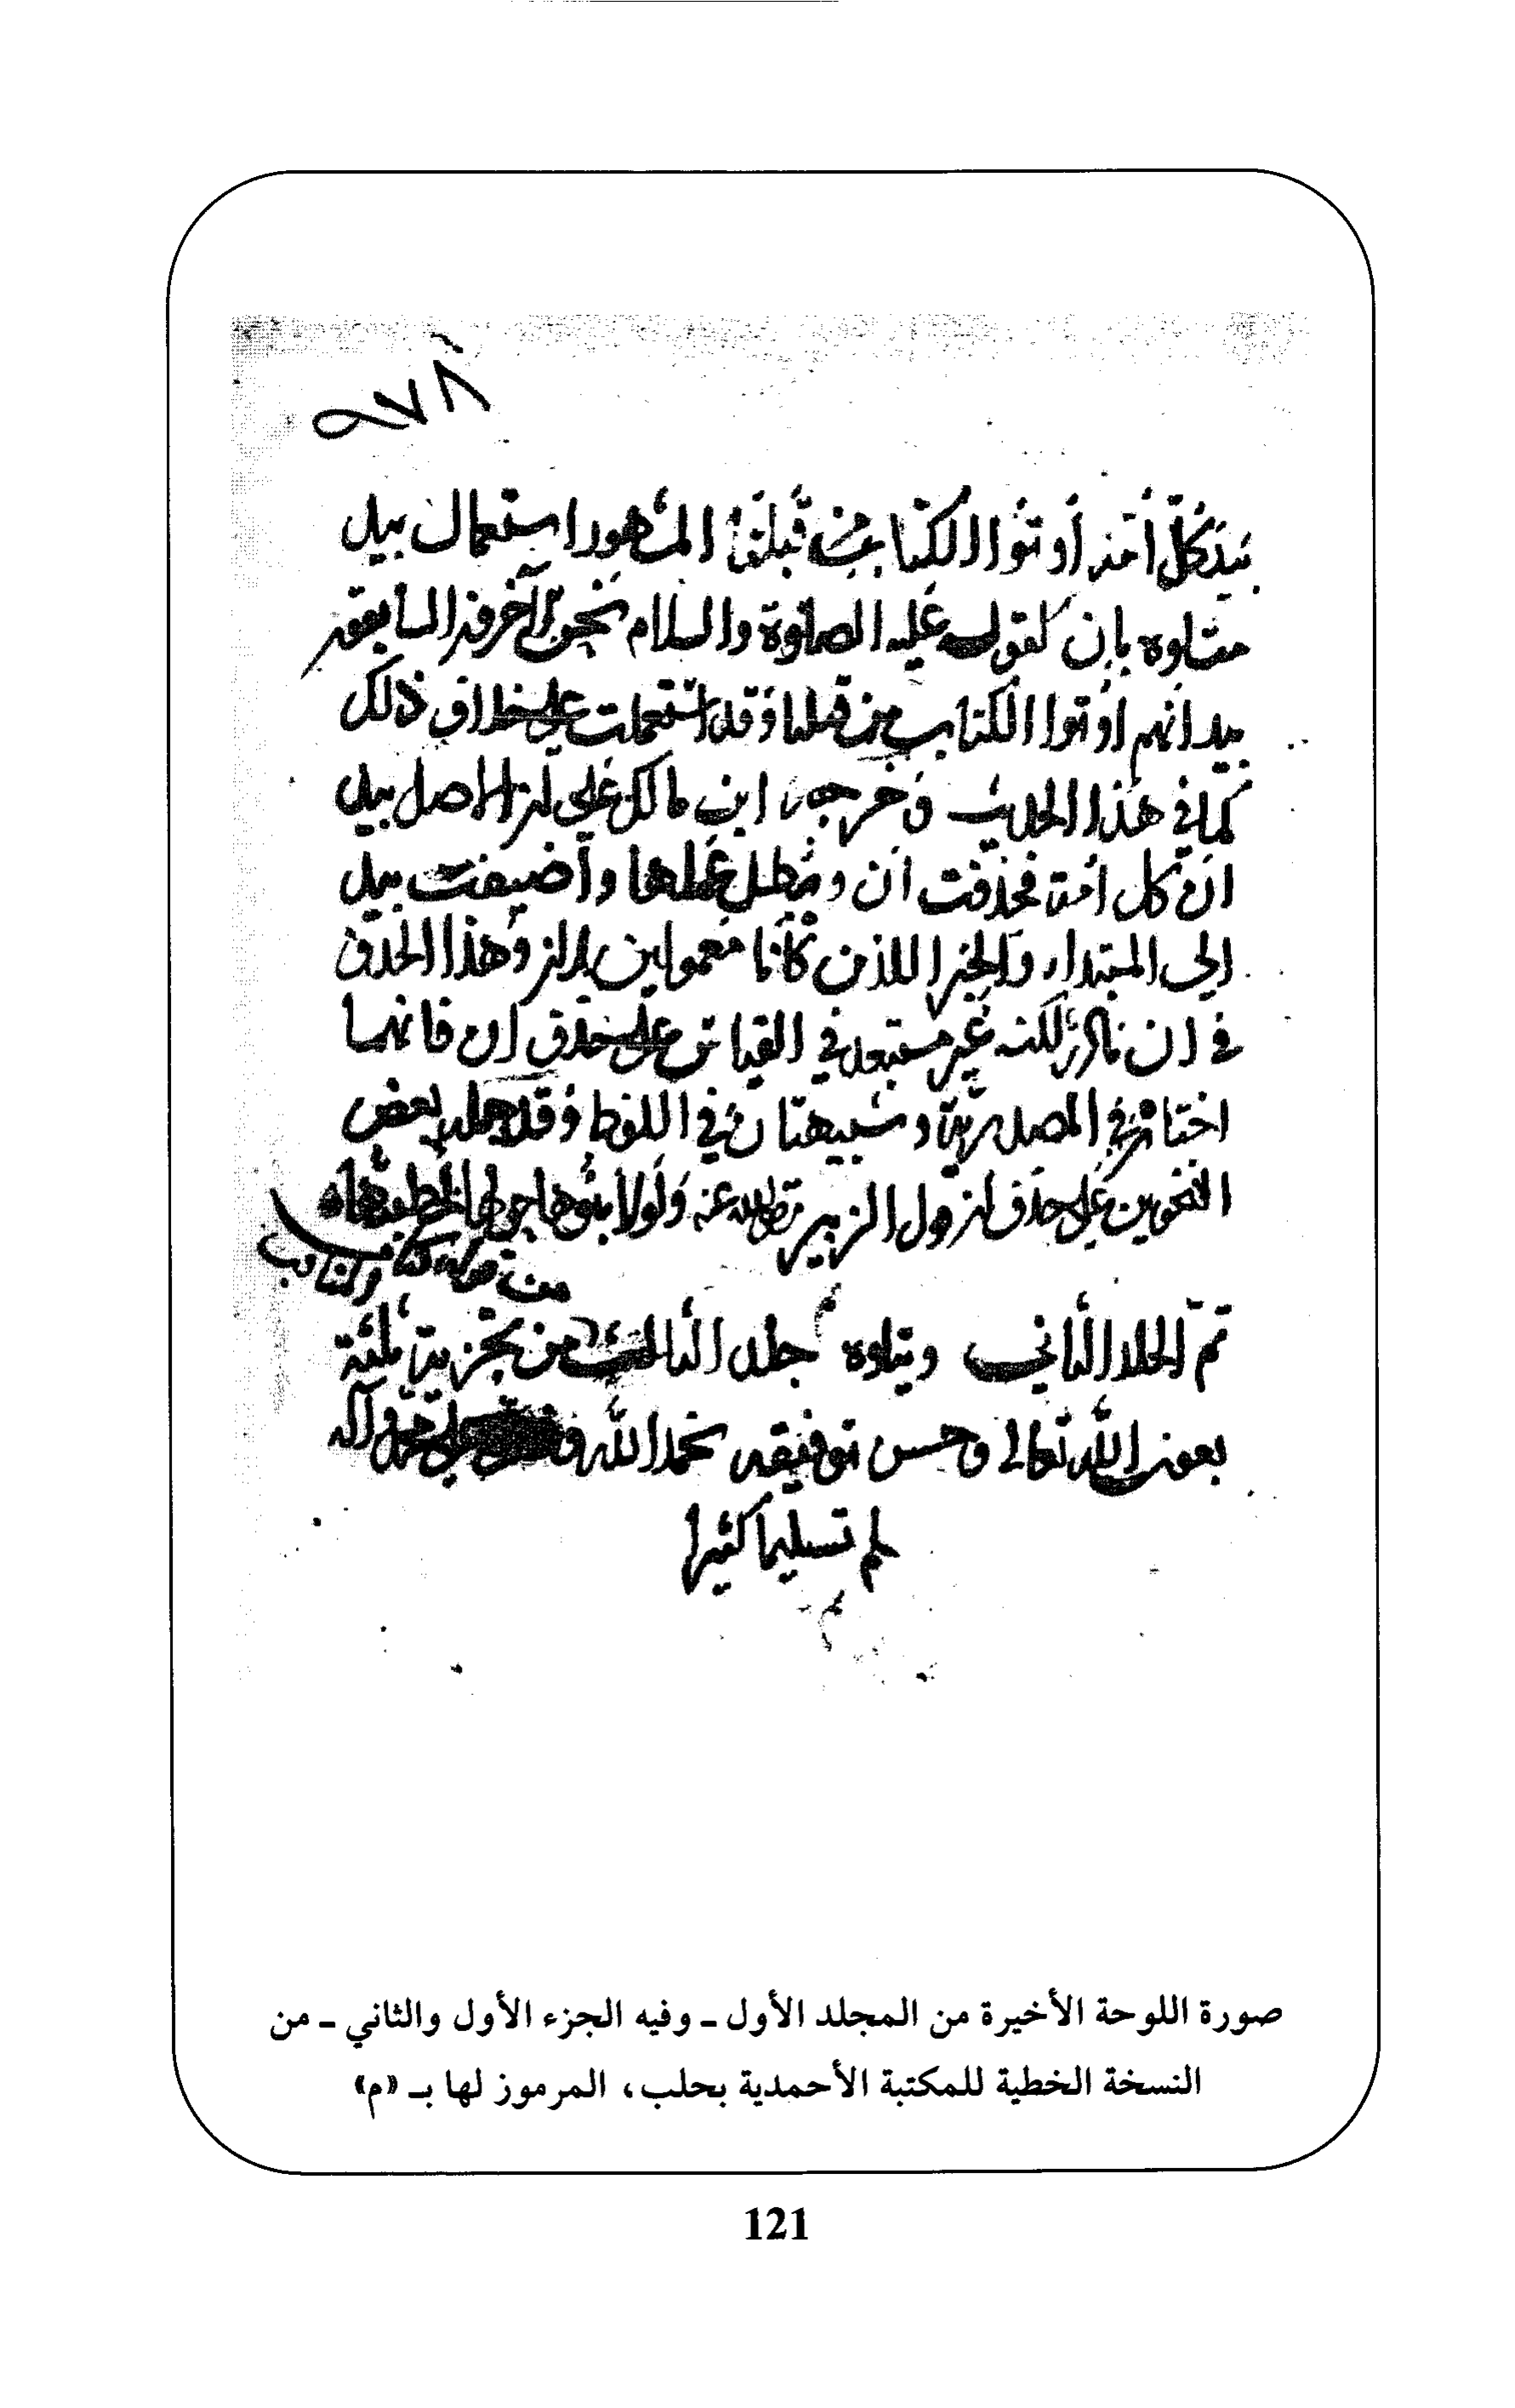 ٩٧٨
بيد كل أمة أوتوا الكتاب من قبلنا المشهور استعمال بيد
متلوه بان كقوله عليه الصلوة والسلام نحن الآخرون السابقون
بيد انهم اوتوا الكتاب من قبلنا وقد استعملت على خلاف ذلك
كما في هذا الحديث وخرجه ابن مالك على ان الاصل بيد
ان كل أمة فحذفت أن وبطل عملها وأضيفت بيد
الى المبتدإ والخبر اللذين كانا معمولين لان وهذا الحذف
في ان نادر لكنه غير مستبعد في القياس على حذف ان فانهما
اختان في المصدرية وشبيهتان في اللفظ وقد حمل بعض
النحويين على حذف ان قول الزبير رضي الله عنه ولولا بنوها حولها لخبطتها
من
تم الجلد الثاني ويتلوه جلد الثالث من تجزية ثلثة
بعون الله تعالى وحسن توفيقه بحمد الله محمد وآله
لم تسليما كثيرا
صورة اللوحة الأخيرة من المجلد الأول ـ وفيه الجزء الأول والثاني ـ من
النسخة الخطية للمكتبة الأحمدية بحلب، المرموز لها بـ «م»
121